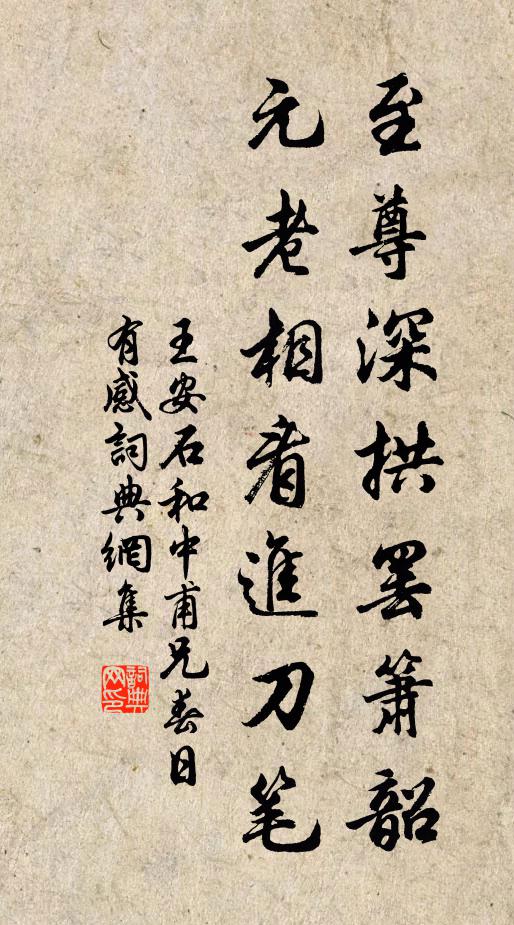 至尊深拱罢箫韶
元老相看進刀笔
王安石和中甫兄春日
有感詞典網集
詞典
网印